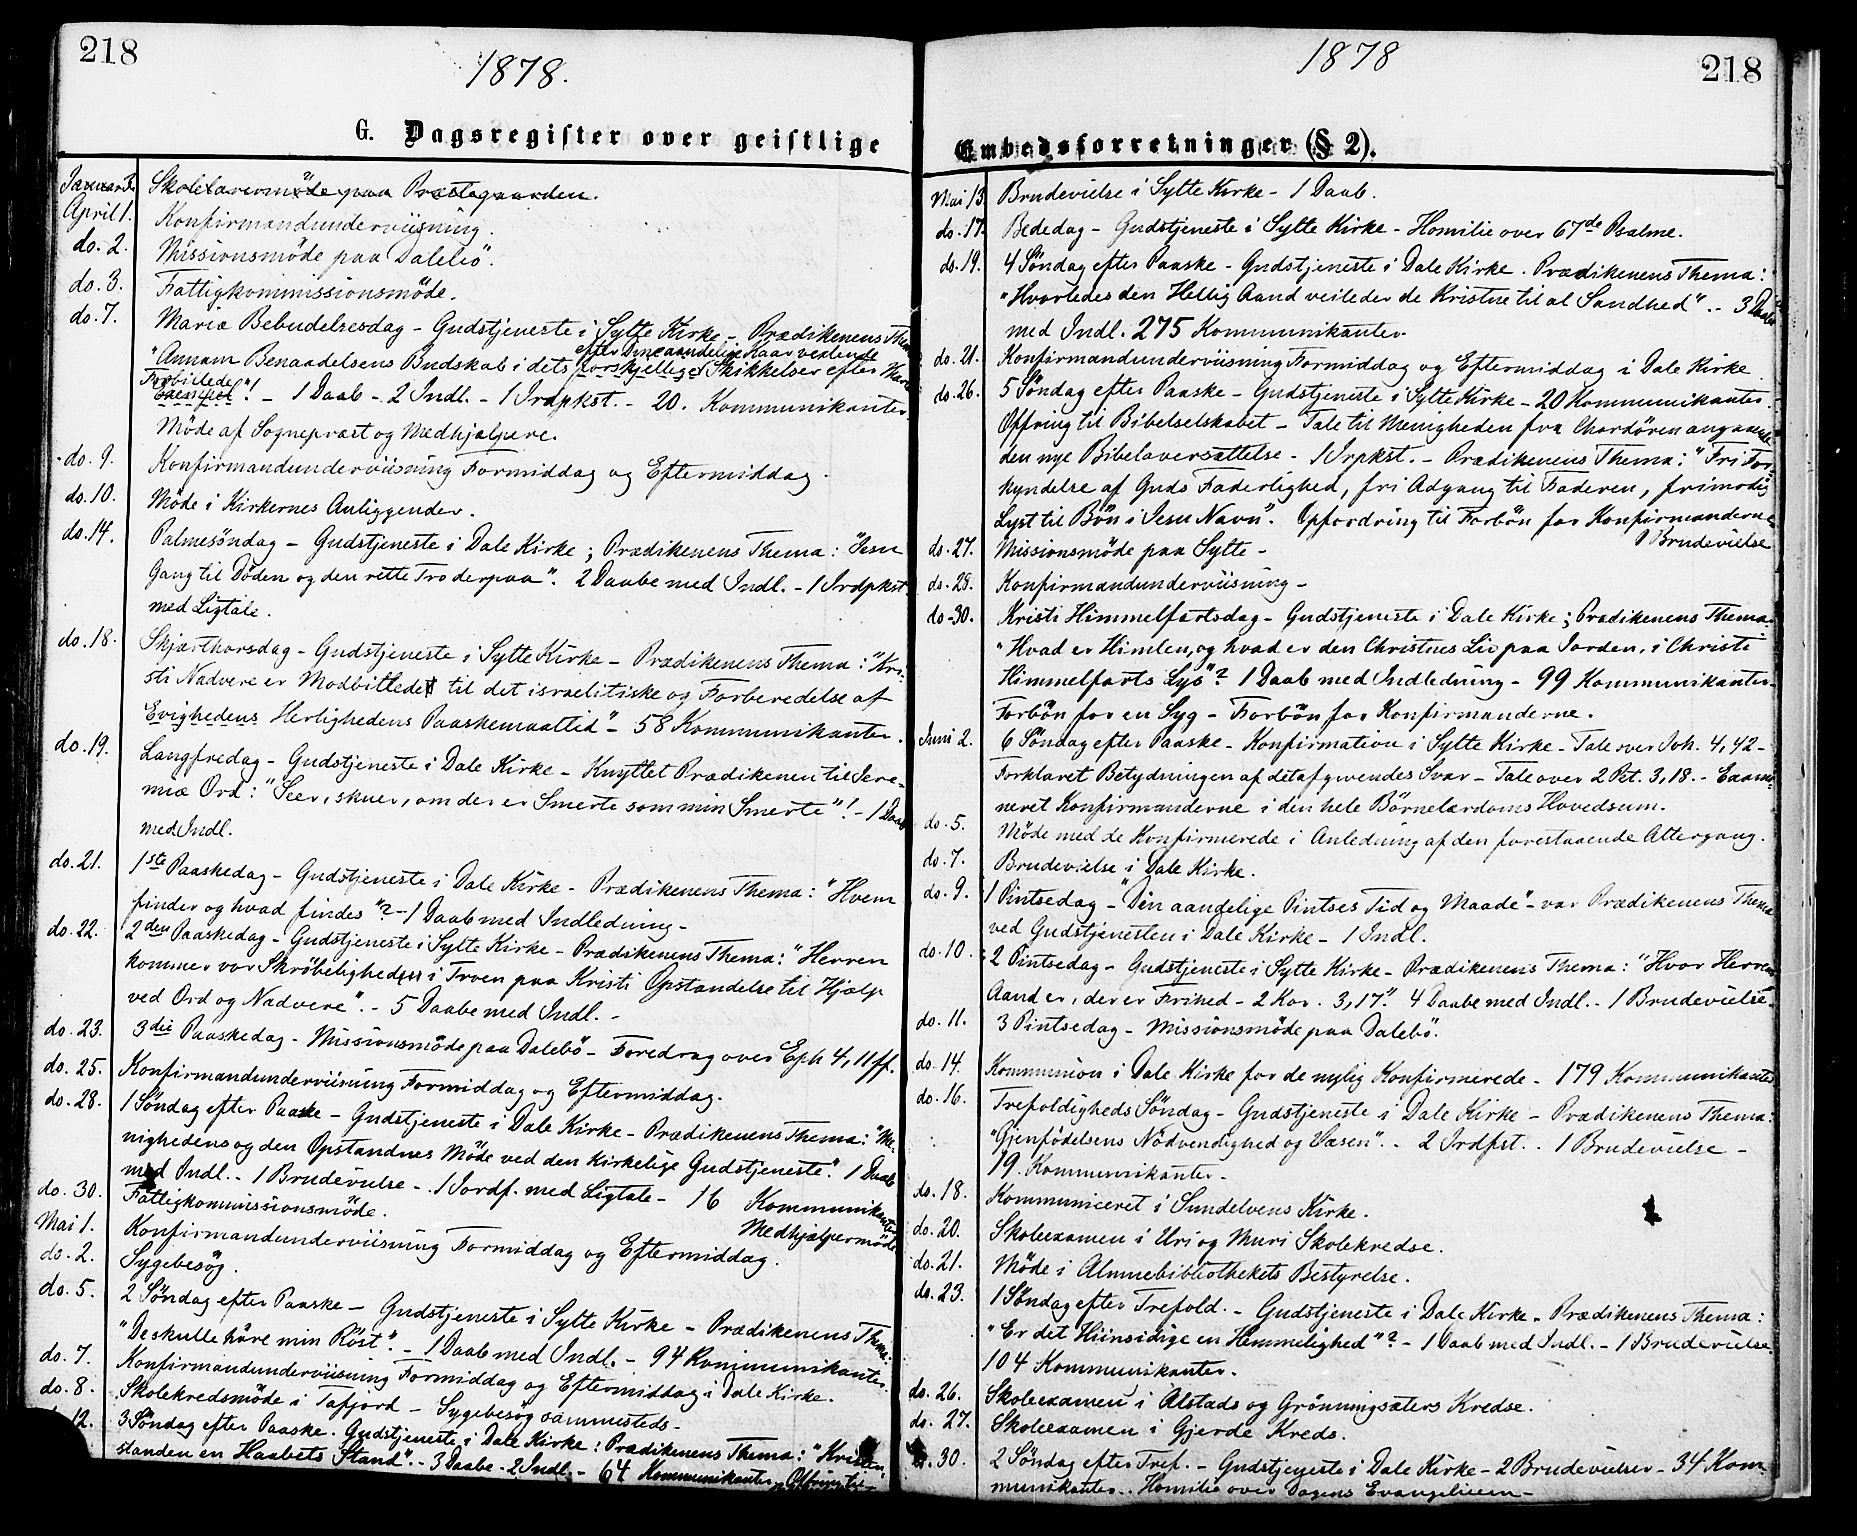 218
1878.
G. Dagsregister over geistlige
April 1. Konfirmandunderviisning.
do. 2. Missionsmöde paa Dalebö.
do. 3. Fattigkommissionsmöde.
do. 7. Mariæ Bebudelsesdag - Gudstjeneste i Sylte Kirke - Prædikenens Thema
efter Dine aandelige Kaar vexlende
"Annam Benaadelsens Budskab i dets forskjellige Skikkelser efter
Forbillede
Exempel"! - 1 Daab - 2 Indl. - 1 Irdpkst. - 20. Kommunikanter
Möde af Sognepræst og Medhjælpere.
do. 9. Konfirmandunderviisning Formiddag og Eftermiddag.
do. 10. Möde i Kirkernes Anliggender.
do. 14. Palmesöndag - Gudstjeneste i Dale Kirke; Prædikenens Thema: "Jesu
Gang til Döden og den rette Tro derpaa". 2 Daabe med Indl. - 1 Irdpkst
med Ligtale.
do. 18. Skjærthorsdag - Gudstjeneste i Sylte Kirke - Prædikenens Thema: "Kri-
sti Nadvere er Modbilledet til det israelitiske og Forberedelse af
Evighedens Herlighedens Paaskemaaltid" - 58 Kommunikanter.
do. 19. Langfredag - Gudstjeneste i Dale Kirke - Knyttet Prædikenen til Jere-
miæ Ord: "Seer, skuer, om der er Smerte som min Smerte"! - 1 Daab
med Indl.
do. 21. 1ste Paaskedag - Gudstjeneste i Dale Kirke - Prædikenens Thema: "Hvem
finder og hvad findes"? - 1 Daab med Indledning -
do. 22. 2den Paaskedag - Gudstjeneste i Sylte Kirke - Prædikenens Thema: "Herren
kommer vor Skröbelighed i Troen paa Kristi Opstandelse til Hjælp
ved Ord og Nadvere". - 5 Daabe med Indl. -
do. 23. 3die Paaskedag - Missionsmöde paa Dalebö - Foredrag over Eph 4, 11 ff.
do. 25. Konfirmandunderviisning Formiddag og Eftermiddag.
do. 28. 1 Söndag efter Paaske - Gudstjeneste i Dale Kirke - Prædikenens Thema: "Me-
nighedens og den Opstandnes Möde ved den kirkelige Gudstjeneste". 1 Daab
med Indl. - 1 Brudevielse - 1 Jordf. med Ligtale - 16 Kommunikanter
do. 30. Fattigkommissionsmöde. Medhjælpermöde
Mai 1. Konfirmandunderviisning Formiddag og Eftermiddag.
do. 2. Sygebesög.
do. 5. 2 Söndag efter Paaske - Gudstjeneste i Sylte Kirke - Prædikenens Thema:
"De skulle höre min Röst". - 1 Daab med Indl. - 94 Kommunikanter.
do. 7. Konfirmandunderviisning Formiddag og Eftermiddag i Dale Kirke.
do. 8. Skolekredsmöde i Tafjord - Sygebesög sammesteds -
12. 3 Söndag efter Paaske. Gudstjeneste i Dale Kirke: Prædikenens Thema: "Kristen-
standen en Haabets Stand". - 3 Daabe - 2 Indl. - 64 Kommunikanter
1878
218
Embedsforretninger (§ 2).
Mai 13. Brudevielse i Sylte Kirke - 1 Daab.
do. 17. Bededag - Gudstjeneste i Sylte Kirke - Homilie over 67de Psalme.
do. 19. 4 Söndag efter Paaske - Gudstjeneste i Dale Kirke. Prædikenens Thema:
"Hvorledes den Hellig Aand veileder de Kristne til al Sandhed". - 3 Daabe
med Indl. 275 Kommunikanter.
do. 21. Konfirmandunderviisning Formiddag og Eftermiddag i Dale Kirke
do. 26. 5 Söndag efter Paaske - Gudstjeneste i Sylte Kirke - 20 Kommunikanter.
Offring til Bibelselskabet - Tale til Menigheden fra Chordören angaaende
den nye Bibeloversættelse - 1 Irpkst. - Prædikenens Thema: "Fri For-
kyndelse af Guds Faderlighed, fri Adgang til Faderen, frimodig
Lyst til Bön i Jesu Navn". Opfordring til Forbön for Konfirmanderne
1 Brudevielse
do. 27. Missionsmöde paa Sylte -
do. 28. Konfirmandunderviisning -
do. 30. Kristi Himmelfartsdag - Gudstjeneste i Dale Kirke; Prædikenens Thema
"Hvad er Himlen, og hvad er den Christnes Liv paa Jorden, i Christi
Himmelfarts Lys"? 1 Daab med Indledning - 99 Kommunikanter -
Forbön for en Syg - Forbön for Konfirmanderne.
Juni 2. 6 Söndag efter Paaske - Konfirmation i Sylte Kirke - Tale over Joh. 4, 42 -
Forklaret Betydningen af det afgivendes Svar - Tale over 2 Pet. 3, 18. - Exami-
neret Konfirmanderne i den hele Börnelærdoms Hovedsum.
do. 5. Möde med de Konfirmerede i Anledning af den forestaaende Altergang.
do. 7. Brudevielse i Dale Kirke.
do. 9. 1 Pintsedag - "Din aandelige Pintses Tid og Maade" - var Prædikenens Thema
ved Gudstjenesten i Dale Kirke - 1 Indl.
do. 10. 2 Pintsedag - Gudstjeneste i Sylte Kirke - Prædikenens Thema: "Hvor Herrens
Aand er, der er Frihed - 2 Kor. 3, 17". 4 Daabe med Indl. - 1 Brudevielse.
do. 11. 3 Pintsedag - Missionsmöde paa Dalebö.
do. 14. Kommunion i Dale Kirke for de nylig Konfirmerede - 179 Kommunikanter
do. 16. Trefoldigheds Söndag - Gudstjeneste i Dale Kirke - Prædikenens Thema:
"Gjenfödelsens Nödvendighed og Væsen". - 2 Irdfst. - 1 Brudevielse -
19. Kommunikanter -
do. 18. Kommuniceret i Sundelvens Kirke.
do. 20. Skoleexamen i Uri og Muri Skolekredse.
do. 21. Möde i Almuebibliothekets Bestyrelse.
do. 23. 1 Söndag efter Trefold. - Gudstjeneste i Dale Kirke - Prædikenens Thema:
"Er det Hiinsidige en Hemmelighed"? - 1 Daab med Indl. - 1 Brudevielse.
104 Kommunikanter.
do. 26. Skoleexamen i Alstads og Grönningsæters Kredse.
do. 27. Skoleexamen i Gjerde Kreds.
30. 2 Söndag efter Tref. - Gudstjeneste i Dale Kirke - 2 Brudevielser - 34 Kom-
munikanter. Homilie over Dagens Evangelium -